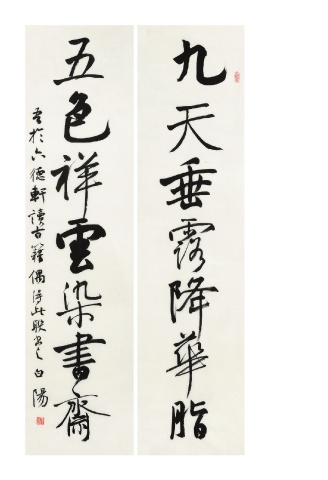 九天垂露降華脂
五色祥雲染書齋
奎於六德軒讀古籍偶得此聯書之 白陽